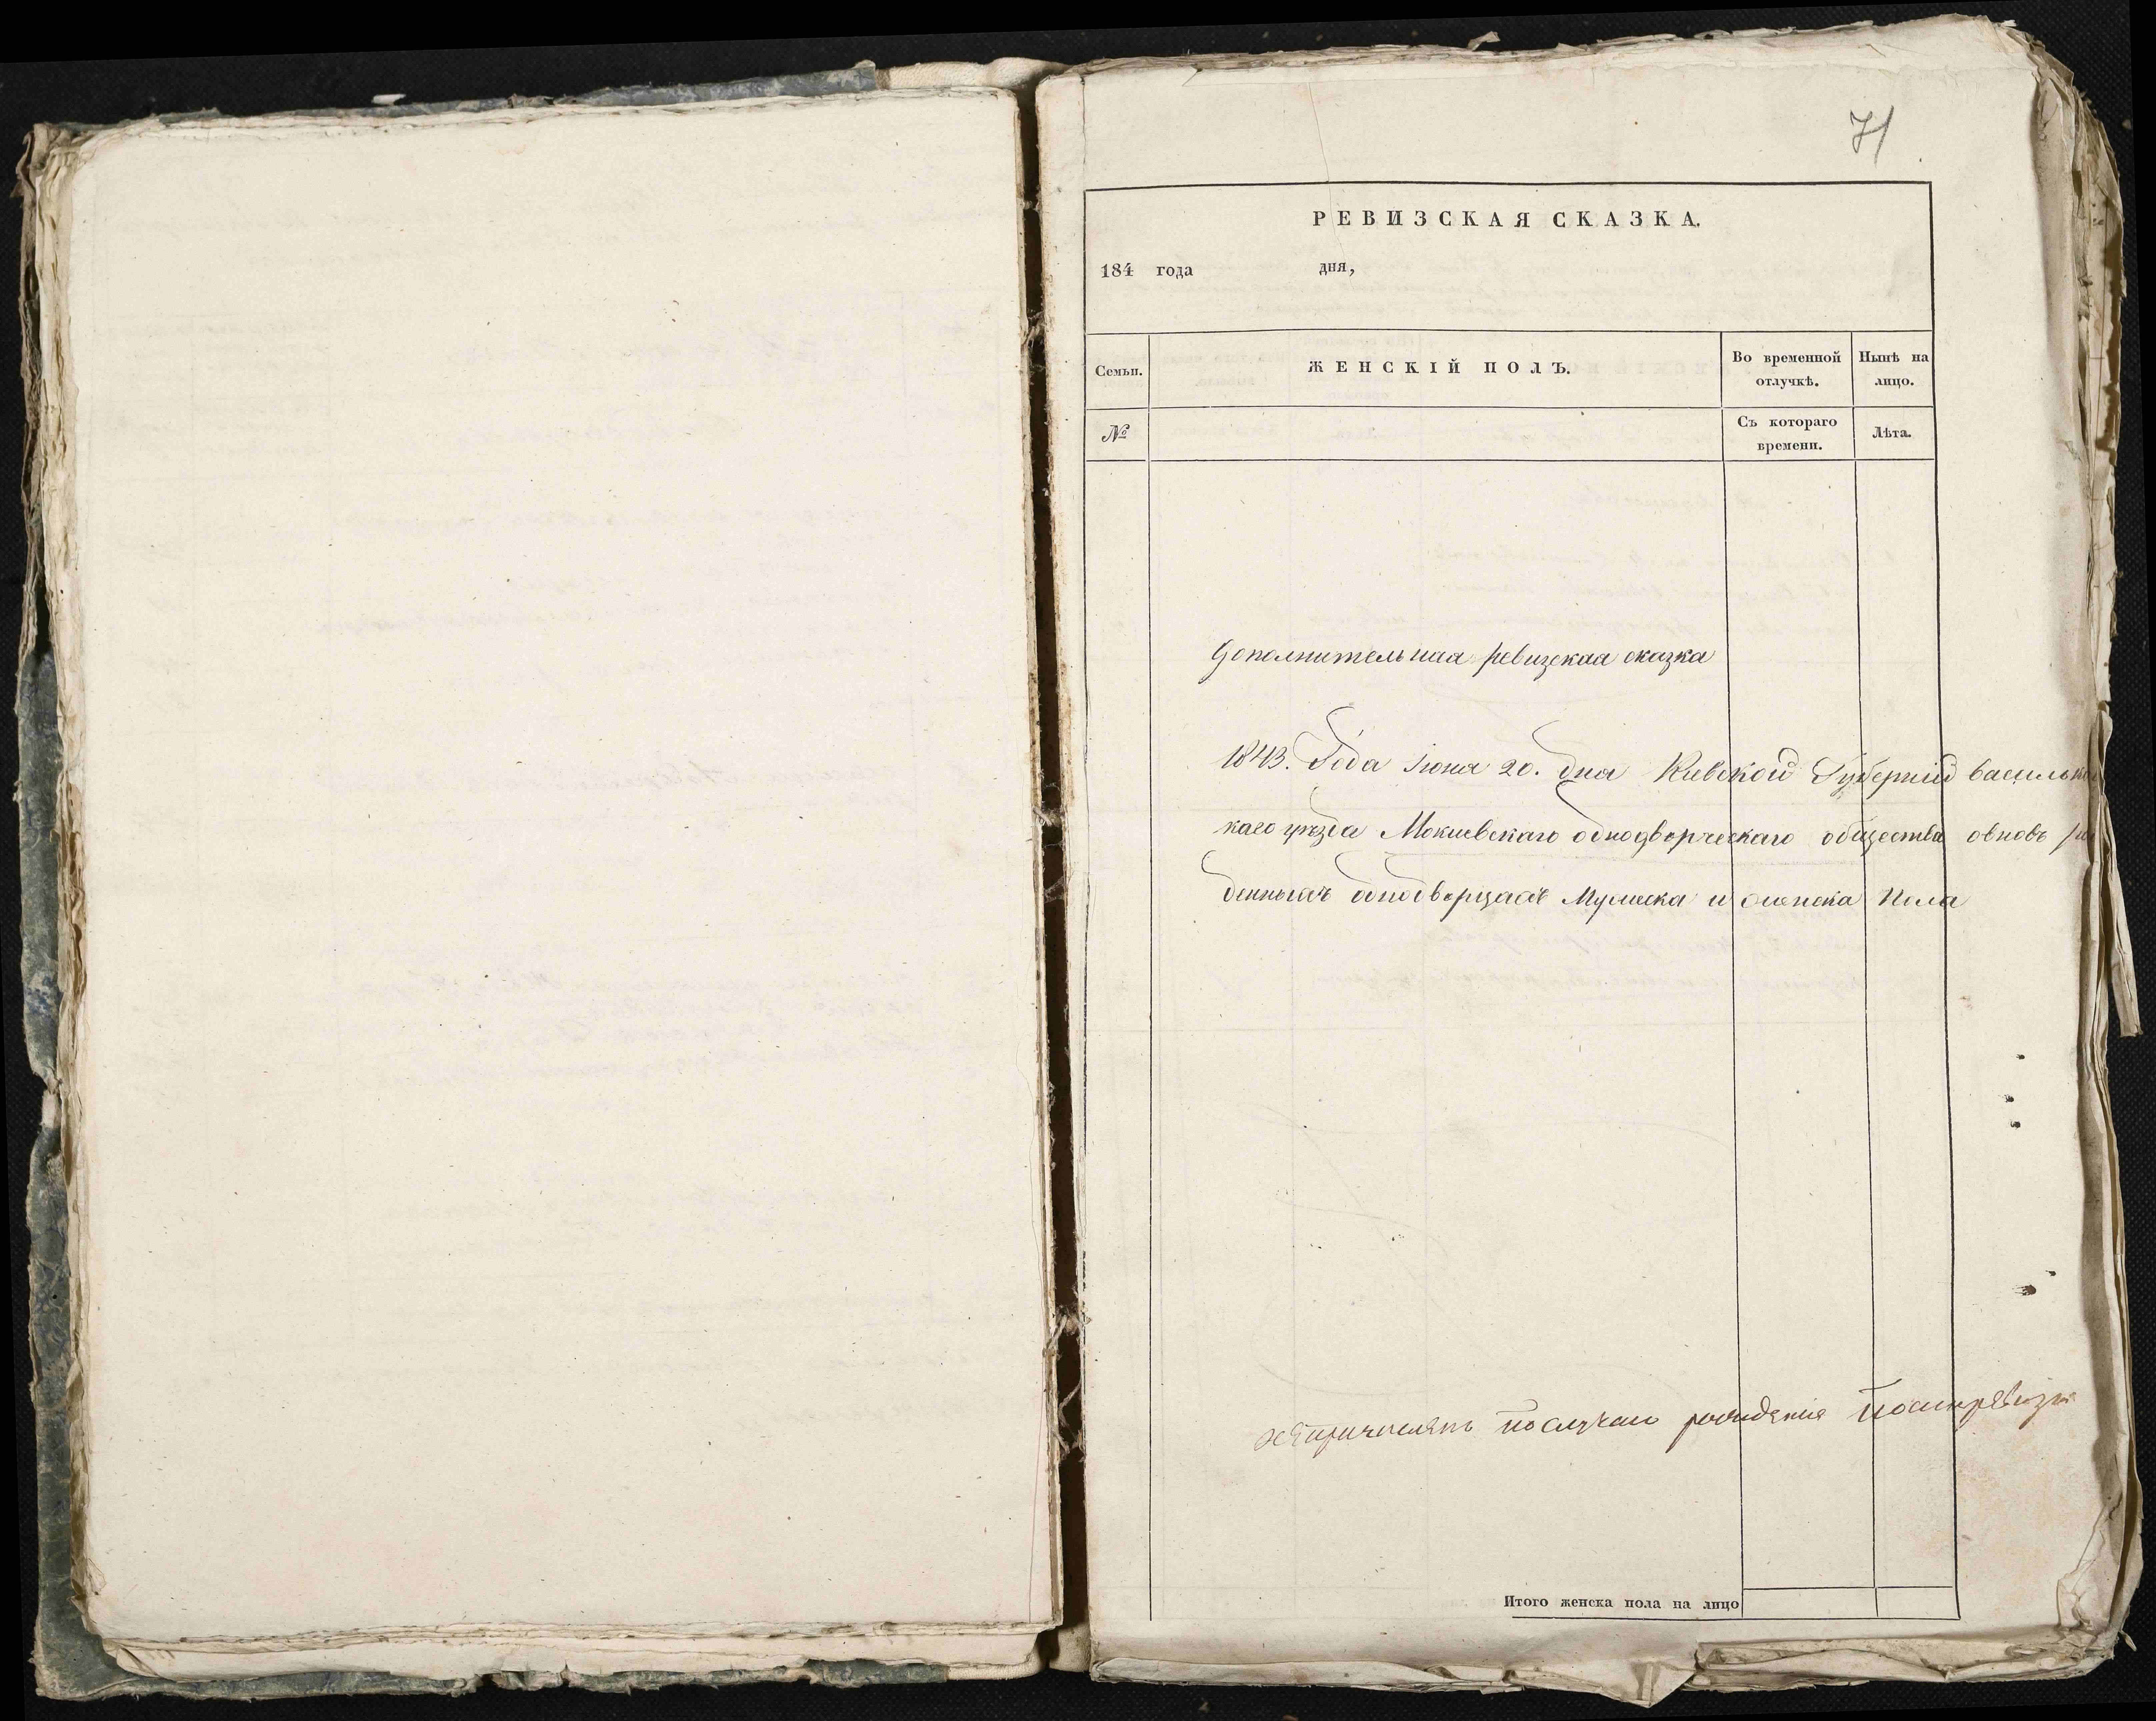 71
РЕВИЗСКАЯ СКАЗКА.
184 года дня,
Семьи. ЖЕНСКІЙ ПОЛЪ. Во временной отлучкѣ. Нынѣ на лицо.
№ Съ котораго времени. Лѣта.
Дополнительная ревизская сказка
1843. Года Іюня 20. дня Киевской Губерніи васильков
каго уѣзда Мокиевскаго однодворческаго общества овновь
денныхъ однодворцахъ Мужеска и женска Пола
по случаю рождения
Итого женска пола на лицо